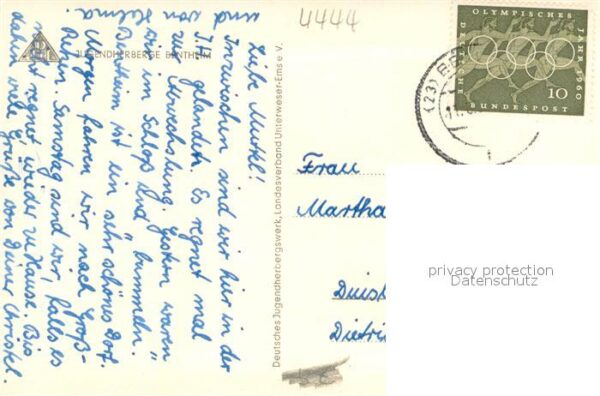 4444
JUGENDHERBERGE BENTHEIM
Liebe Mutti!
Inzwischen sind wir hier in der
J. gelandet. Es regnet mal
zur Abwechslung. Gestern waren
wir im Schloß und "bummeln".
Bentheim ist ein sehr schönes Dorf.
Morgen fahren wir nach Groß-
Am Samstag sind wir, falls es
regnet wieder zu Hause. Bis
dahin viele Grüße von Deiner Christel.
und
von
Helma
Deutsches Jugendherbergswerk, Landesverband Unterweser-Ems e.V.
OLYMPISCHES
JAHR 1960
DEUTSCHE
BUNDESPOST
10
(23) BE
Frau
Martha
Duis
Dietri
privacy protection
Datenschutz